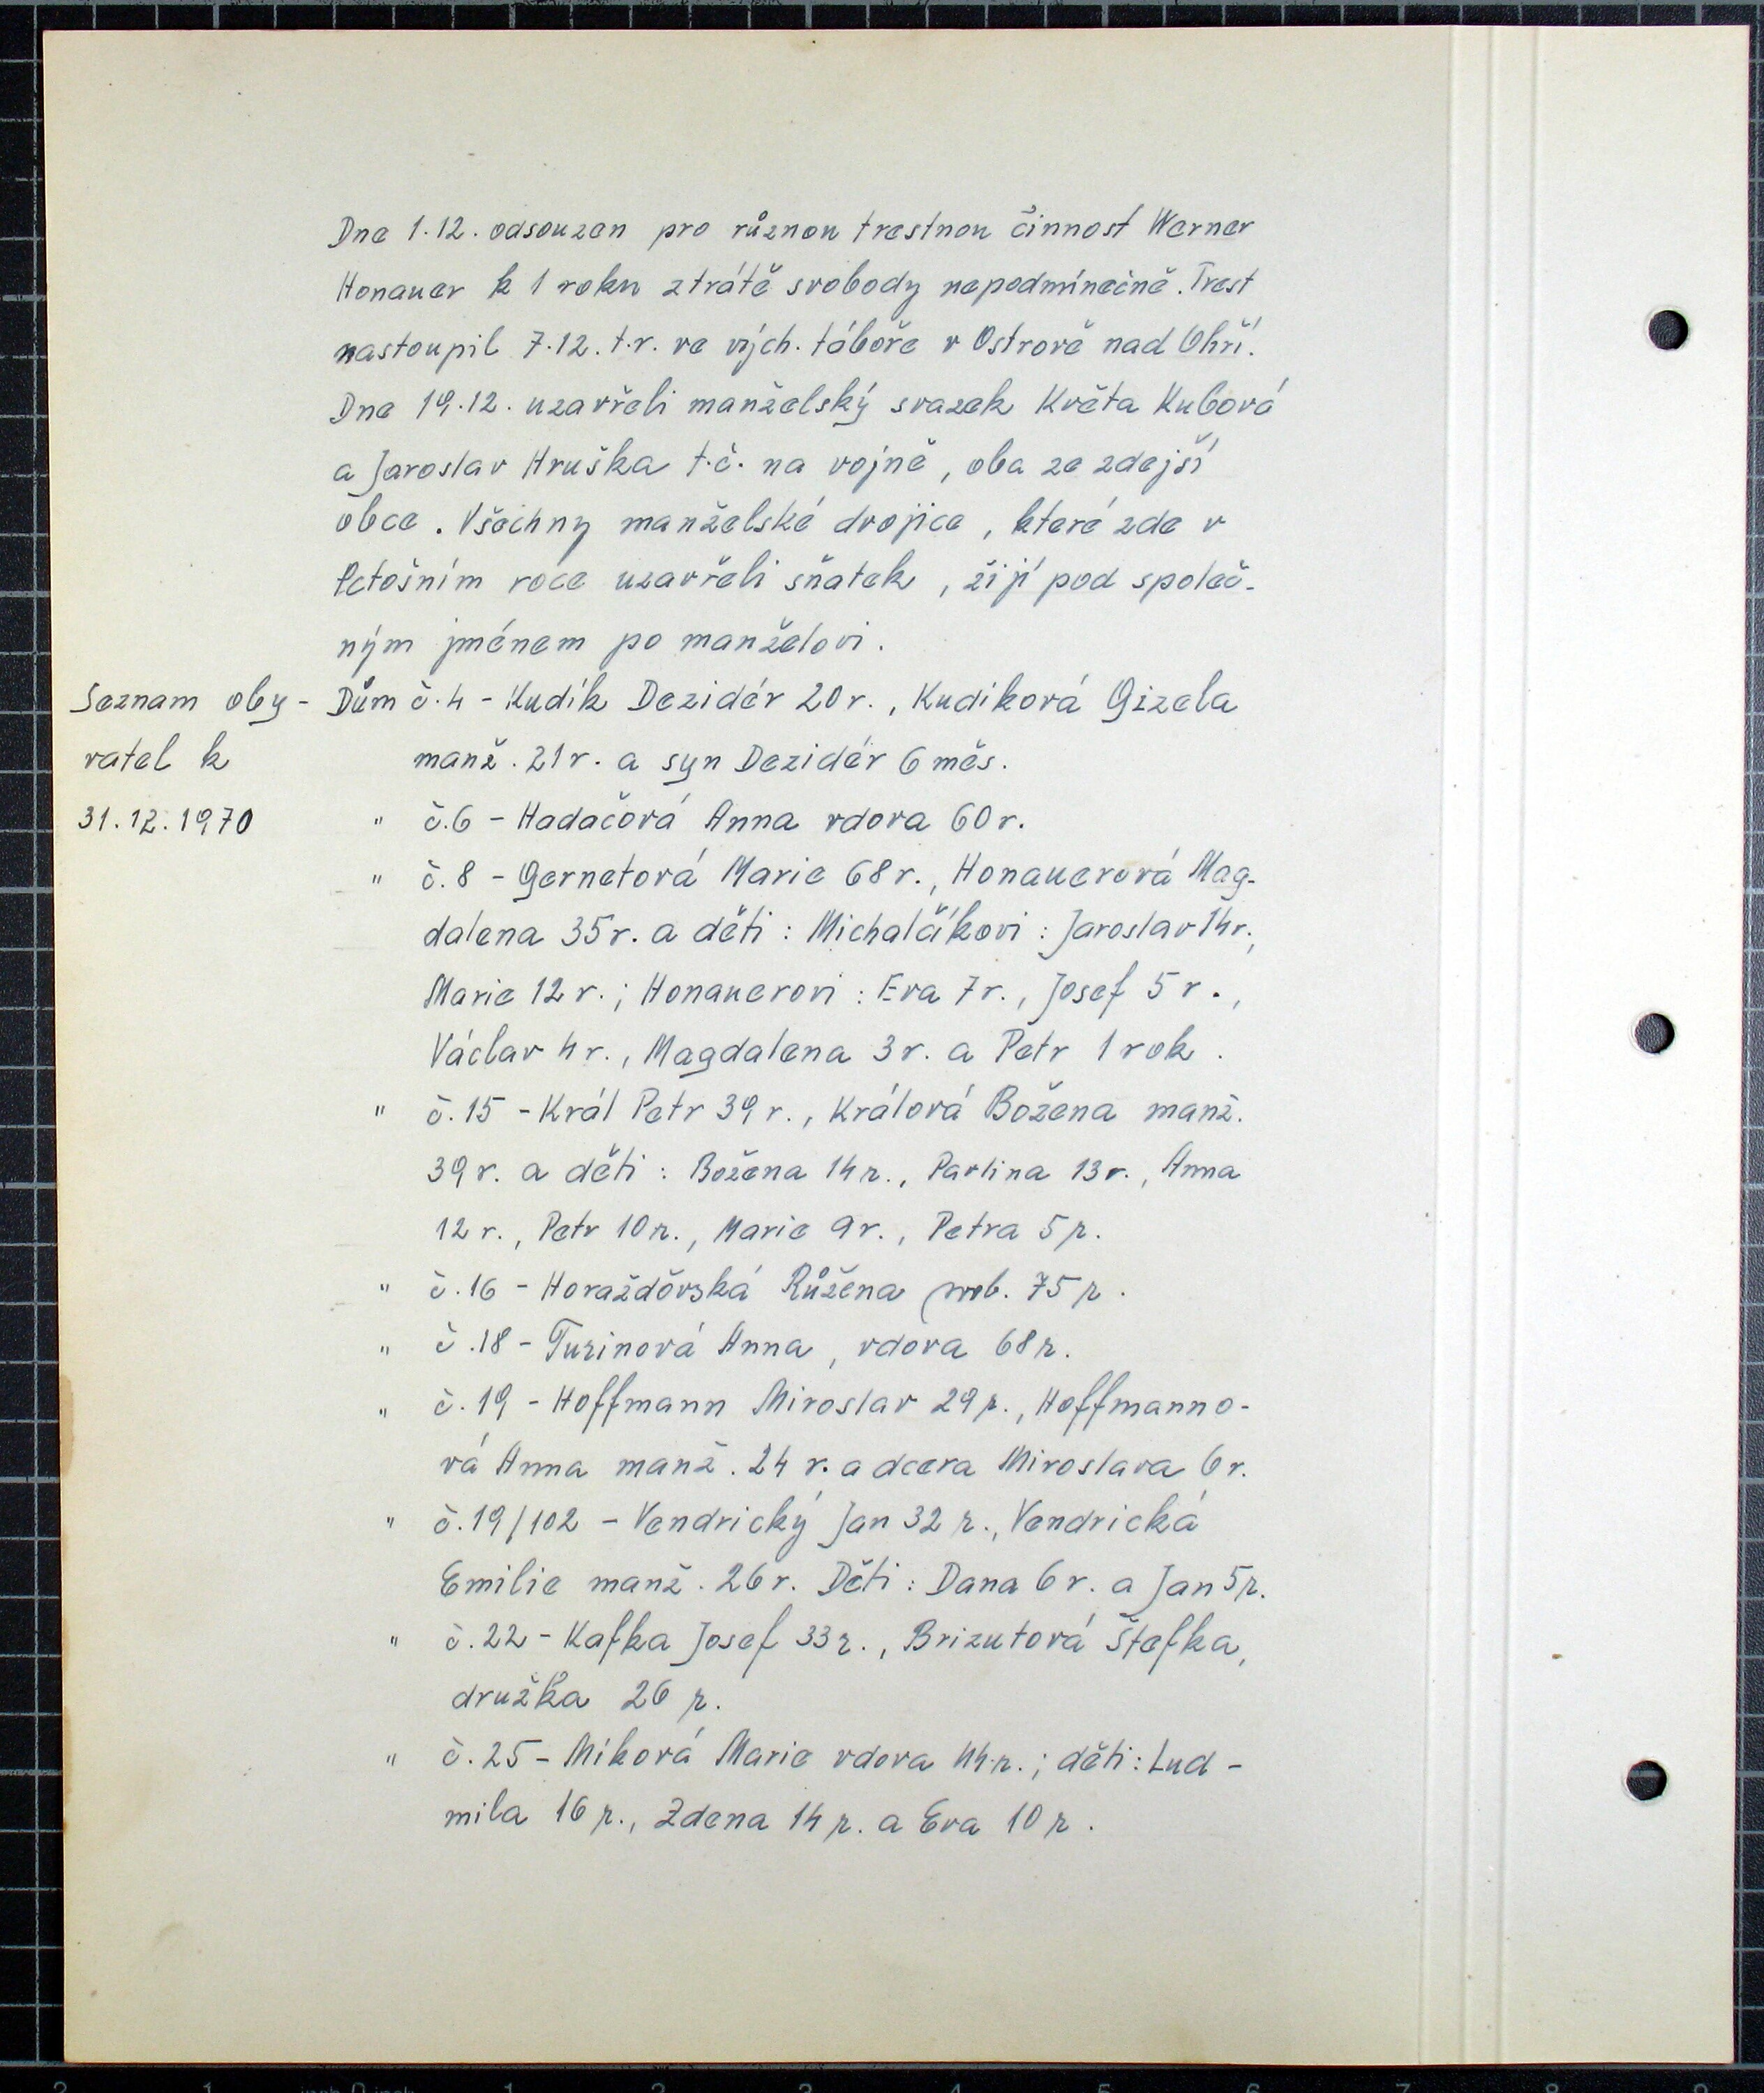 Dne 1.12. odsouzen pro různou trestnou činnost Werner
Honauer k 1 roku ztrátě svobody nepodmínečně. Trest
nastoupil 7.12. t.r. ve vých. táboře v Ostrově nad Ohří.
Dne 19.12. uzavřeli manželský svazek Květa Kubová
a Jaroslav Hruška t.č. na vojně, oba ze zdejší
obce. Všechny manželské dvojice, které zde v
letošním roce uzavřeli sňatek, žijí pod společ-
ným jménem po manželovi.
Seznam oby-
vatel k
31.12.1970
Dům č.4 - Kudík Dezidér 20 r., Kudiková Gizela
manž. 21 r. a syn Dezidér 6 měs.
" č.6 - Hadačová Anna vdova 60 r.
" č.8 - Gernetová Marie 68 r., Honauerová Mag-
dalena 35 r. a děti: Michalčíkovi: Jaroslav 14 r.,
Marie 12 r.; Honauerovi: Eva 7 r., Josef 5 r.,
Václav 4 r., Magdalena 3 r. a Petr 1 rok.
" č.15 - Král Petr 39 r., Králová Božena manž.
39 r. a děti: Božena 14 r., Pavlina 13 r., Anna
12 r., Petr 10 r., Marie 9 r., Petra 5 r.
" č.16 - Horažďovská Růžena 75 r.
" č.18 - Turinová Anna, vdova 68 r.
" č.19 - Hoffmann Miroslav 29 r., Hoffmanno-
vá Anna manž. 24 r. a dcera Miroslava 6 r.
" č.19/102 - Vendrický Jan 32 r., Vendrická
Emilie manž. 26 r. Děti: Dana 6 r. a Jan 5 r.
" č.22 - Kafka Josef 33 r., Brizutová Štefka,
družka 26 r.
" č.25 - Miková Marie vdova 44 r.; děti: Lud-
mila 16 r., Zdena 14 r. a Eva 10 r.